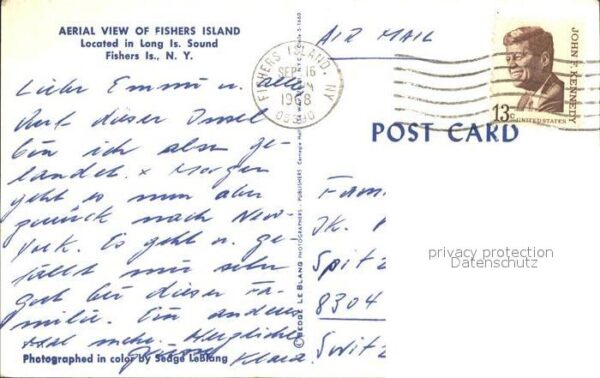 AERIAL VIEW OF FISHERS ISLAND
Located in Long Is. Sound
Fishers Is., N. Y.
Liebe Emmi u. alle
Auf dieser Insel
bin ich also ge-
landet. Morgen
geht es nun aber
zurück nach New-
York. Es geht u. ge-
fällt mir sehr
gut bei dieser Fa-
milie. Ein anderes
Mal mehr. Herzliche
Klara.
Photographed in color by Sedge LeBlang
© SEDGE LE BLANG PHOTOGRAPHERS - PUBLISHERS
AIR MAIL
FISHERS ISLAND, NY
SEP 16
1968
06390
JOHN F. KENNEDY
13c
UNITED STATES
POST CARD
Fam.
Spitz
8304
Switz
privacy protection
Datenschutz